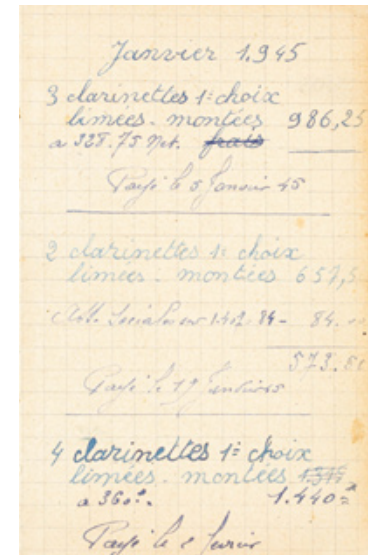 Janvier 1.945
3 clarinettes 1: choix
limées - montées 986,25
a 328.75 Net. frais
Payé le 5 Janvier 45
2 clarinettes 1: choix
limées - montées 657,5
Sociales sur 1.402. 84 - 84.
573.50
Payé le 19 Janvier 45
4 clarinettes 1: choix
limées - montées
a 360 1.440=
Payé le 2 Fevrier